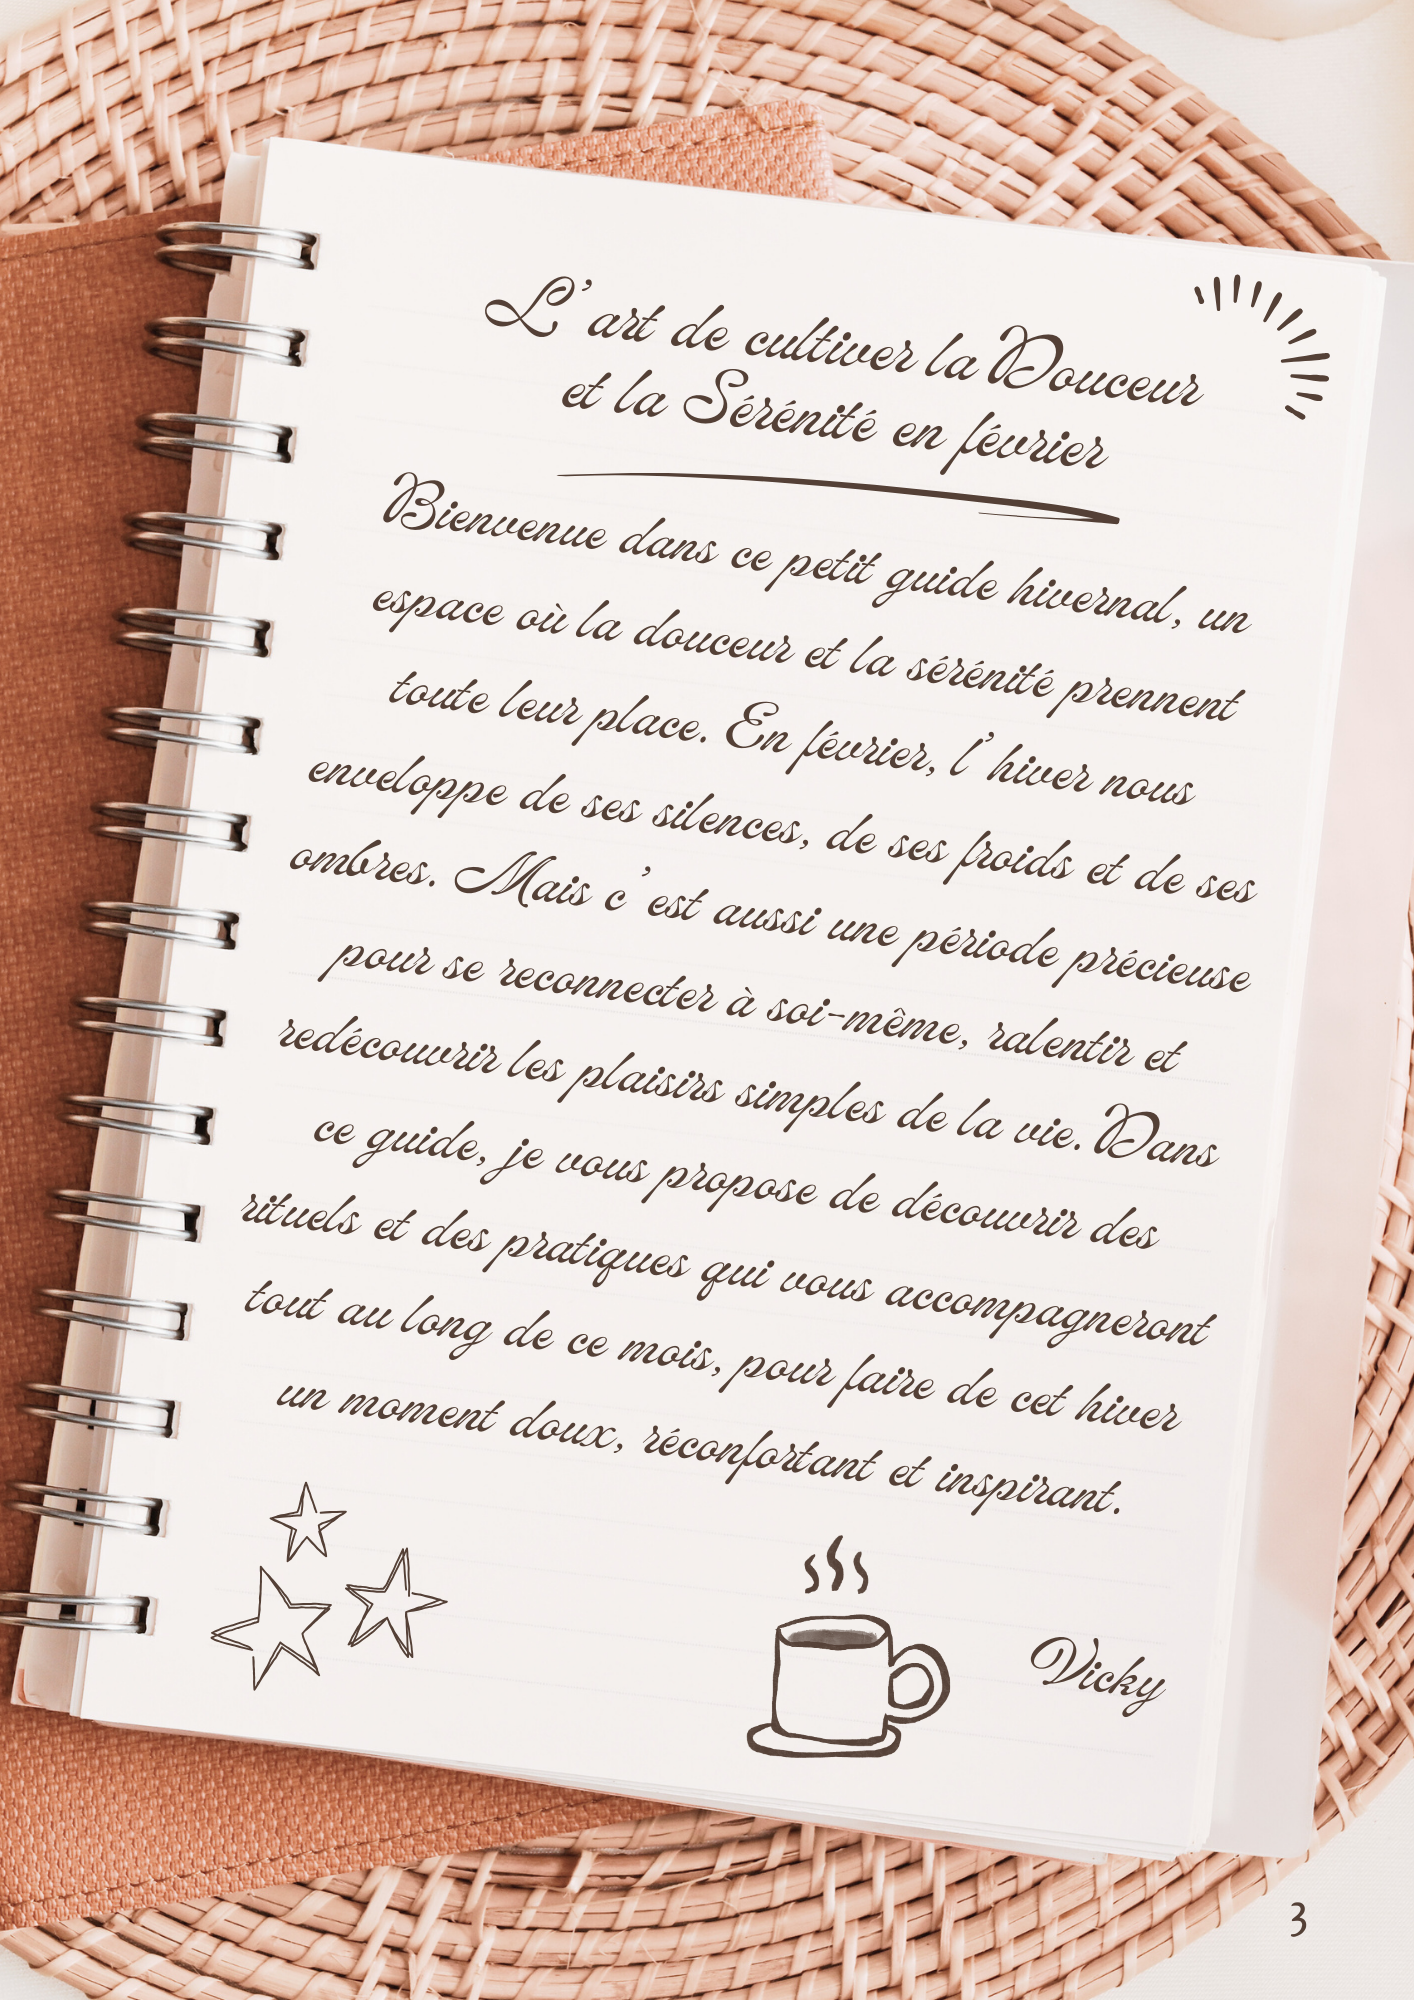 L'art de cultiver la Douceur
et la Sérénité en février
Bienvenue dans ce petit guide hivernal, un
espace où la douceur et la sérénité prennent
toute leur place. En février, l'hiver nous
enveloppe de ses silences, de ses froids et de ses
ombres. Mais c'est aussi une période précieuse
pour se reconnecter à soi-même, ralentir et
redécouvrir les plaisirs simples de la vie. Dans
ce guide, je vous propose de découvrir des
rituels et des pratiques qui vous accompagneront
tout au long de ce mois, pour faire de cet hiver
un moment doux, réconfortant et inspirant.
Vicky
3